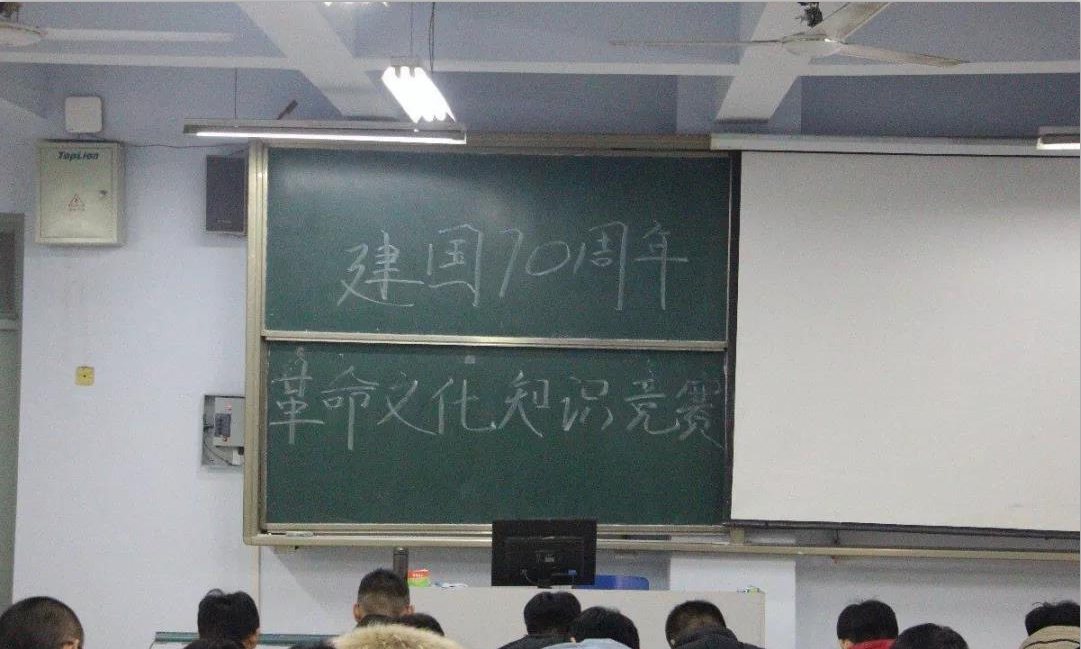 TopLion
建国70周年
革命文化知识竞赛